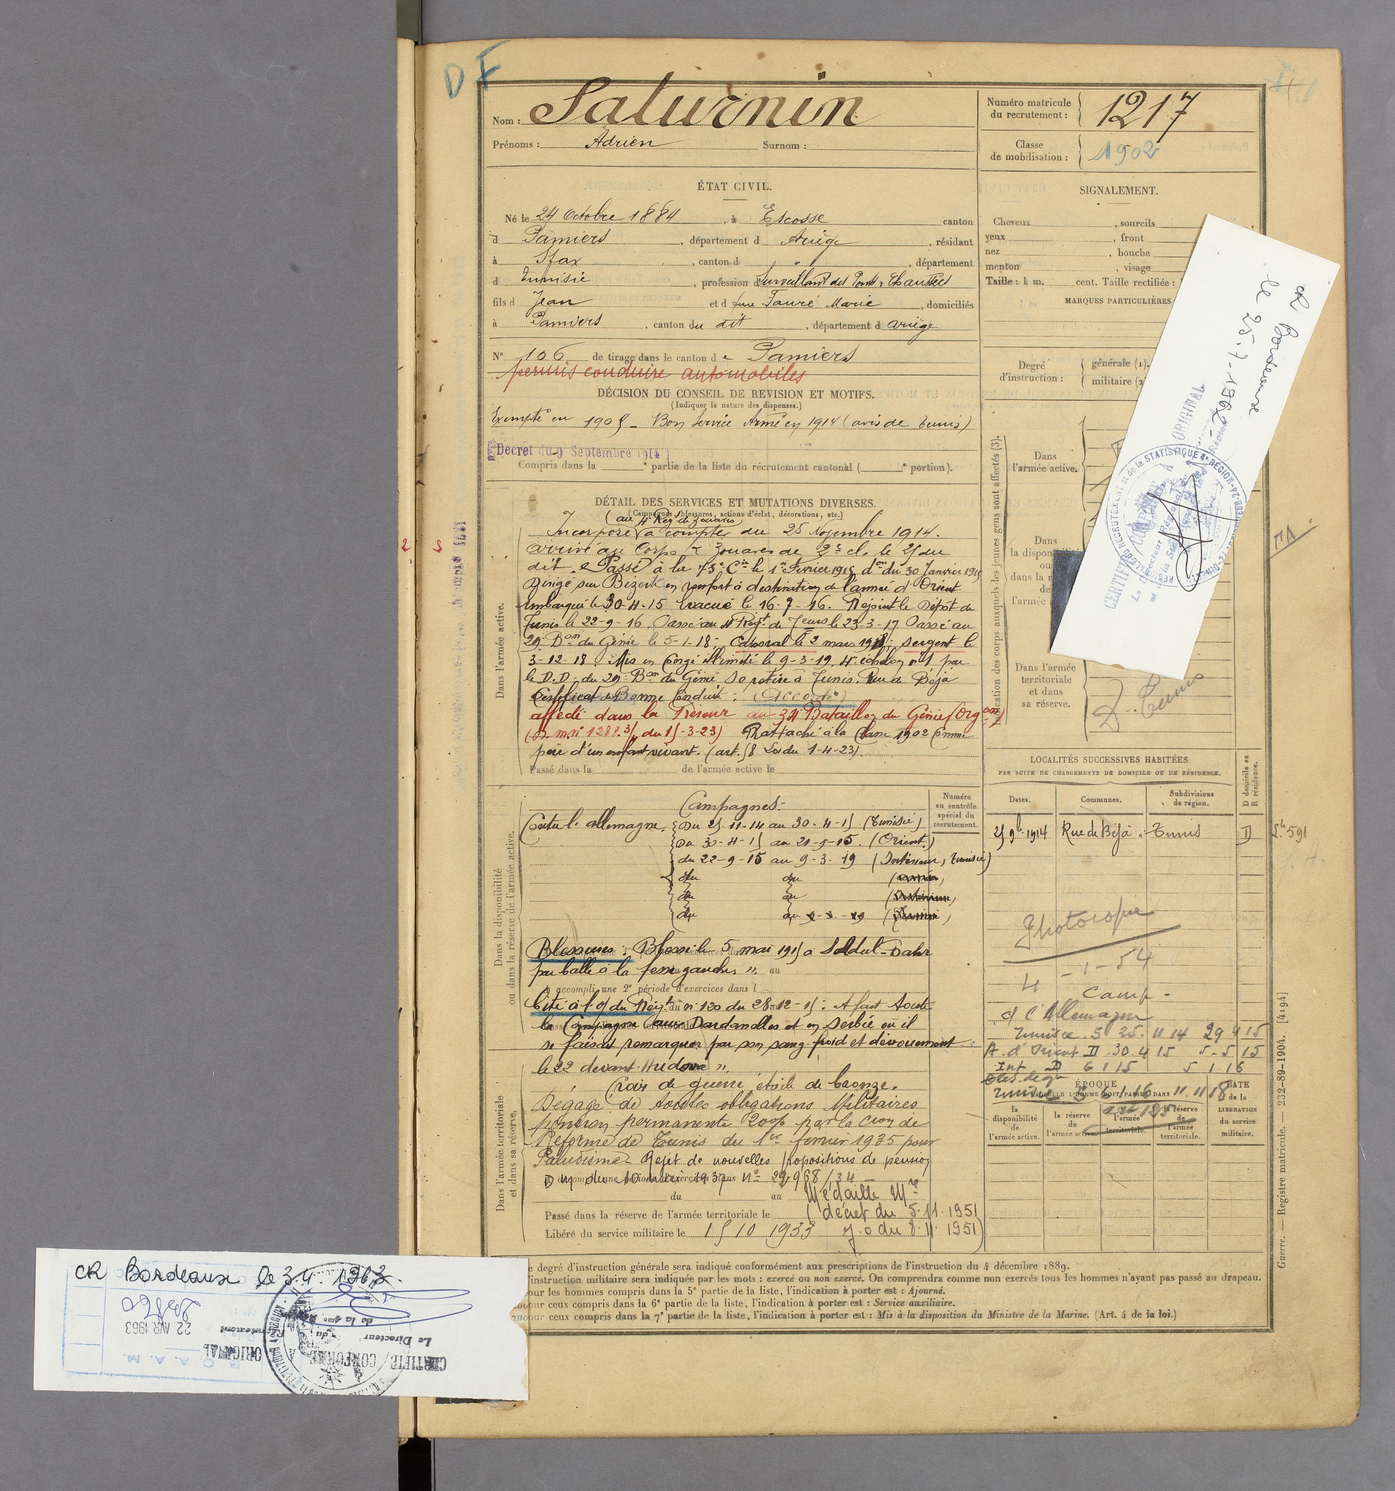 D F
Nom : Saturnin
Prénoms : Adrien Surnom :
Numéro matricule du recrutement : 1217
Classe de mobilisation : 1902
ÉTAT CIVIL.
Né le 24 Octobre 1884, à Escosse canton
d Pamiers, département d Ariège, résidant
à Sfax, canton d ", département
d Tunisie, profession d Surveillant des Ponts & Chaussées
fils d Jean et d feue Fauré Marie, domiciliés
à Pamiers, canton du dit, département d Ariège
N° 106 de tirage dans le canton de Pamiers
permis conduire automobiles
DÉCISION DU CONSEIL DE REVISION ET MOTIFS.
(Indiquer la nature des dispenses.)
Exempté en 1905 _ Bon Service Armé en 1914 (avis de Tunis)
Décret du 9 Septembre 1914
Compris dans la ° partie de la liste du récrutement cantonal ( ° portion).
DÉTAIL DES SERVICES ET MUTATIONS DIVERSES.
(Campagnes, blessures, actions d'éclat, décorations, etc.)
(au 4e Reg. de Zouaves)
Incorporé à compter du 25 Novembre 1914.
Arrivé au Corps & Zouaves de 2e cl. le 25 du
dit. Passé à la 73e Cie le 1er Février 1915 don du 30 Janvier 1915
Dirigé sur Bizerte en renfort à destination de l'armée d'Orient
Embarqué le 30-4-15 Evacué le 16-7-16. Rejoint le Dépôt de
Tunis le 22-9-16. Passé au 4e Regt de Zouaves le 23-3-17 Passé au
29e Bon du Génie le 5-1-18- Caporal le 2 mars 1918; sergent le
3-12-18 Mis en Congé illimité le 9-3-19. 4e échelon n°1 par
le D.D. du 29e Bon du Génie Se retire à Tunis. Rue de Béjà
Certificat de Bonne Conduite : (Accordé)
affecté dans la Réserve au 34 Bataillon du Génie (Org on)
du 15-3-23) Rattaché à la Classe 1902 Comme
père d'un enfant vivant. (art. 58 Loi du 1-4-23).
Passé dans la de l'armée active le
Dans l'armée active.
Campagnes:
Contre l'allemagne. Du 25-11-14 au 30-4-15 (Tunisie)
Du 30-4-15 au 21-5-15. (Orient)
du 22-9-15 au 9-3-19 (Intérieur, Tunisie)
du au
du au
du au
Blessures : Blessé le 5 mai 1915 à Seddul-Bahr
par balle à la fesse gauche ".
accompli une 2e période d'exercices dans l
Cité à l'o/ du Régt n° 120 du 28-12-15 : A fait toute
la Campagne aux Dardanelles et en Serbie où il
se faisait remarquer par son sang froid et dévouement
le 22 devant Hudova ".
Croix de guerre étoile de bronze.
Dégagé de toutes obligations Militaires
pension permanente 20% par la Cion de
Réforme de Tunis du 1er février 1935 pour
Paludisme. Rejet de nouvelles propositions de pension
Médaille Mre
du au
Passé dans la réserve de l'armée territoriale le (décret du 5.11.1951
Libéré du service militaire le 15 10 1933 J.O du 8.11.1951)
Dans la disponibilité ou dans la réserve de l'armée active.
Dans l'armée territoriale et dans sa réserve.
Numéro au contrôle spécial du recrutement.
SIGNALEMENT.
Cheveux, sourcils
yeux, front
nez, bouche
menton, visage
Taille : 1 m. cent. Taille rectifiée :
MARQUES PARTICULIÈRES
Degré d'instruction : générale (1).
militaire (2
Dans l'armée active.
Dans la disponibilité
Dans l'armée territoriale et dans sa réserve.
D. Tunis
LOCALITÉS SUCCESSIVES HABITÉES
PAR SUITE DE CHANGEMENTS DE DOMICILE OU DE RÉSIDENCE.
Dates. Communes. Subdivisions de région. D domicile ou R résidence.
25 9bre 1914 Rue de Béjà. Tunis D
591
Photocopie
4 -1-54
Camp.
c/ l'Allemagne
Tunisie S 25. 11 14 29 4 15
A. d'Orient D 30. 4 15 5-5 15
Int D 6 1 15 5 1 16
Tunisie S 6 1 16 11.11 18
ÉPOQUE
DATE de la LIBÉRATION du service militaire.
la disponibilité de l'armée active. la réserve de l'armée active. l'armée territoriale. la réserve de l'armée territoriale.
e degré d'instruction générale sera indiqué conformément aux prescriptions de l'instruction du 4 décembre 1889.
'instruction militaire sera indiquée par les mots : exercé ou non exercé. On comprendra comme non exercés tous les hommes n'ayant pas passé au drapeau.
our les hommes compris dans la 5e partie de la liste, l'indication à porter est : Ajourné.
our ceux compris dans la 6e partie de la liste, l'indication à porter est : Service auxiliaire.
our ceux compris dans la 7e partie de la liste, l'indication à porter est : Mis à la disposition du Ministre de la Marine. (Art. 4 de la loi.)
Guerre. — Registre matricule. — 232-89-1904. [4194]
CR Bordeaux
le 25.7.1962
ORIGINAL
CR Bordeaux le 3.4 1963.
22 AVR 1963
Le Directeur
CERTIFIÉ CONFORME A
ORIGINAL